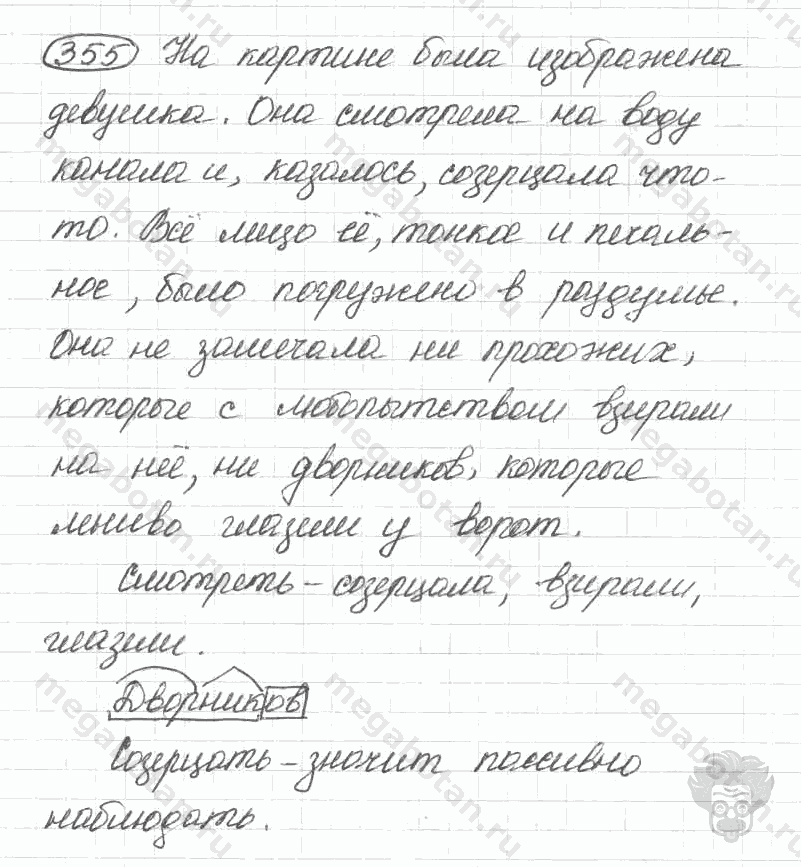 355 На картине была изображена
девушка. Она смотрела на воду
канала и, казалось, созерцала что-
то. Всё лицо её, тонкое и печаль-
ное, было погружено в раздумье.
Она не замечала ни прохожих,
которые с любопытством взирали
на неё, ни дворников, которые
лениво глазели у ворот.
Смотреть – созерцала, взирали,
глазели.
Дворников
Созерцать – значит пассивно
наблюдать.
megabotan.ru